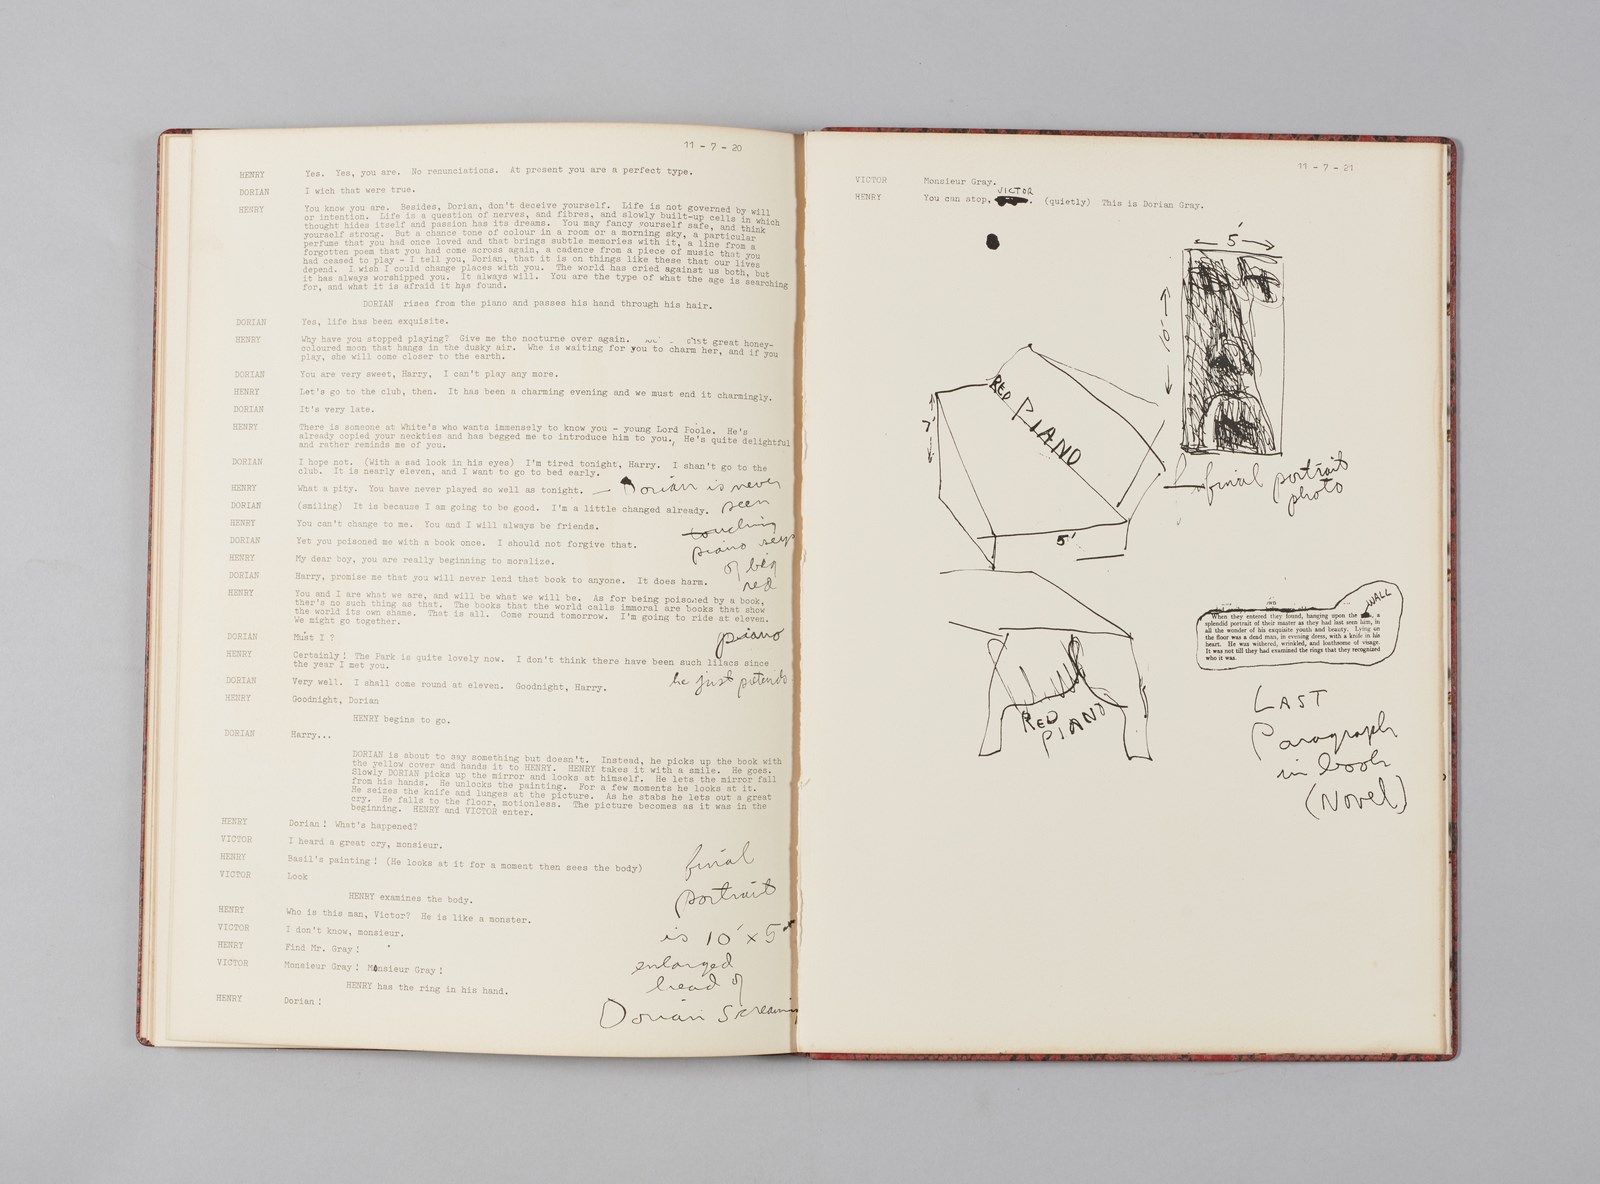 11 - 7 - 20
HENRY Yes. Yes, you are. No renunciations. At present you are a perfect type.
DORIAN I wich that were true.
HENRY You know you are. Besides, Dorian, don't deceive yourself. Life is not governed by will
or intention. Life is a question of nerves, and fibres, and slowly built-up cells in which
thought hides itself and passion has its dreams. You may fancy yourself safe, and think
yourself strong. But a chance tone of colour in a room or a morning sky, a particular
perfume that you had once loved and that brings subtle memories with it, a line from a
forgotten poem that you had come across again, a cadence from a piece of music that you
had ceased to play - I tell you, Dorian, that it is on things like these that our lives
depend. I wish I could change places with you. The world has cried against us both, but
it has always worshipped you. It always will. You are the type of what the age is searching
for, and what it is afraid it has found.
DORIAN rises from the piano and passes his hand through his hair.
DORIAN Yes, life has been exquisite.
HENRY Why have you stopped playing? Give me the nocturne over again. great honey-
coloured moon that hangs in the dusky air. Whe is waiting for you to charm her, and if you
play, she will come closer to the earth.
DORIAN You are very sweet, Harry, I can't play any more.
HENRY Let's go to the club, then. It has been a charming evening and we must end it charmingly.
DORIAN It's very late.
HENRY There is someone at White's who wants immensely to know you - young Lord Poole. He's
already copied your neckties and has begged me to introduce him to you., He's quite delightful
and rather reminds me of you.
DORIAN I hope not. (With a sad look in his eyes) I'm tired tonight, Harry. I shan't go to the
club. It is nearly eleven, and I want to go to bed early.
HENRY What a pity. You have never played so well as tonight. — Dorian is never
DORIAN (smiling) It is because I am going to be good. I'm a little changed already. seen
HENRY You can't change to me. You and I will always be friends. touching
DORIAN Yet you poisoned me with a book once. I should not forgive that. piano keys
HENRY My dear boy, you are really beginning to moralize. of big
DORIAN Harry, promise me that you will never lend that book to anyone. It does harm. red
HENRY You and I are what we are, and will be what we will be. As for being poisoned by a book,
ther's no such thing as that. The books that the world calls immoral are books that show
the world its own shame. That is all. Come round tomorrow. I'm going to ride at eleven.
We might go together.
DORIAN Must I ? piano
HENRY Certainly! The Park is quite lovely now. I don't think there have been such lilacs since
the year I met you.
DORIAN Very well. I shall come round at eleven. Goodnight, Harry. he just pretends
HENRY Goodnight, Dorian
HENRY begins to go.
DORIAN Harry...
DORIAN is about to say something but doesn't. Instead, he picks up the book with
the yellow cover and hands it to HENRY. HENRY takes it with a smile. He goes.
Slowly DORIAN picks up the mirror and looks at himself. He lets the mirror fall
from his hands. He unlocks the painting. For a few moments he looks at it.
He seizes the knife and lunges at the picture. As he stabs he lets out a great
cry. He falls to the floor, motionless. The picture becomes as it was in the
beginning. HENRY and VICTOR enter.
HENRY Dorian! What's happened?
VICTOR I heard a great cry, monsieur.
HENRY Basil's painting! (He looks at it for a moment then sees the body) final
VICTOR Look
HENRY examines the body. portrait
HENRY Who is this man, Victor? He is like a monster.
VICTOR I don't know, monsieur. is 10' x 5'
HENRY Find Mr. Gray!
VICTOR Monsieur Gray! Monsieur Gray! enlarged
HENRY has the ring in his hand. head of
HENRY Dorian! Dorian Screaming
11 - 7 - 21
VICTOR Monsieur Gray.
VICTOR
HENRY You can stop, . (quietly) This is Dorian Gray.
5'
10'
RED PIANO
2'
final portrait
photo
5'
WALL
When they entered they found, hanging upon the a
splendid portrait of their master as they had last seen him, in
all the wonder of his exquisite youth and beauty. Lying on
the floor was a dead man, in evening dress, with a knife in his
heart. He was withered, wrinkled, and loathsome of visage.
It was not till they had examined the rings that they recognized
who it was.
RED
PIANO
LAST
Paragraph
in book
(Novel)